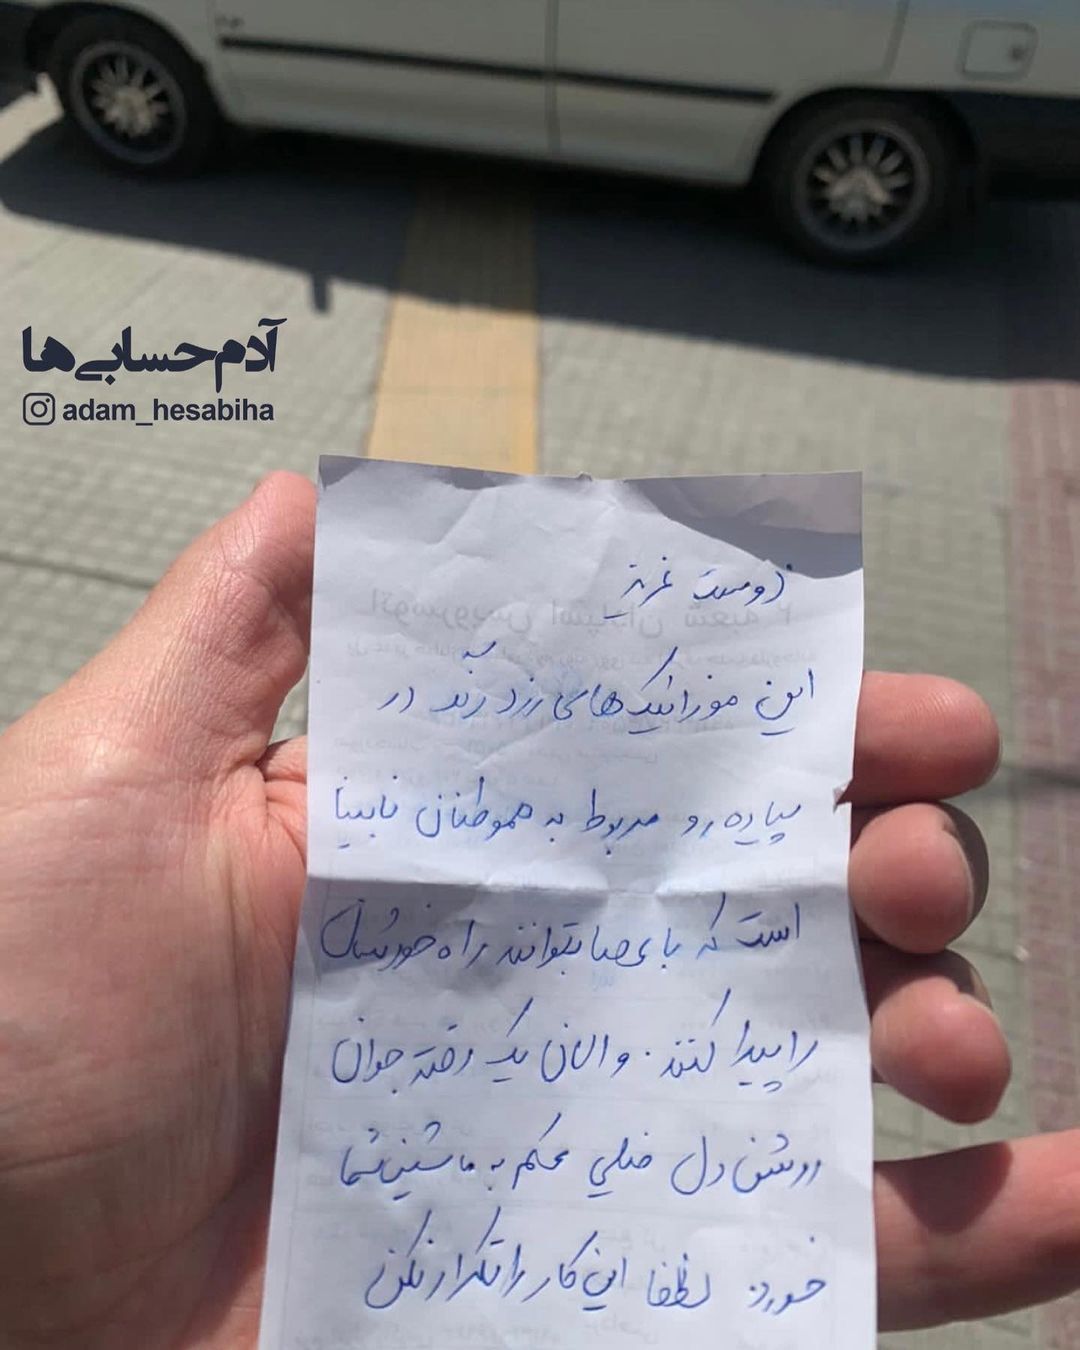 آدم‌حسابی‌ها
adam_hesabiha
دوست عزیز
این موزائیک‌های زرد رنگ در
پیاده رو مربوط به هموطنان نابینا
است که با عصا بتوانند راه خودشان
را پیدا کنند. و الان یک دختر جوان
روشن دل خیلی محکم به ماشین شما
خورد. لطفا این کار را تکرار نکن
شعبه ۲ اتوسرویس اسپادان